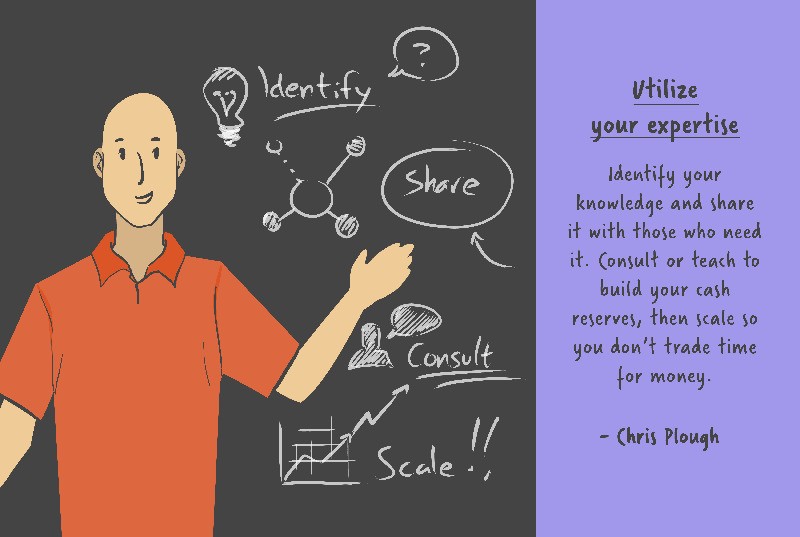 Identify
?
Share
Consult
Scale!!
Utilize
your expertise
Identify your
knowledge and share
it with those who need
it. Consult or teach to
build your cash
reserves, then scale so
you don't trade time
for money.
- Chris Plough